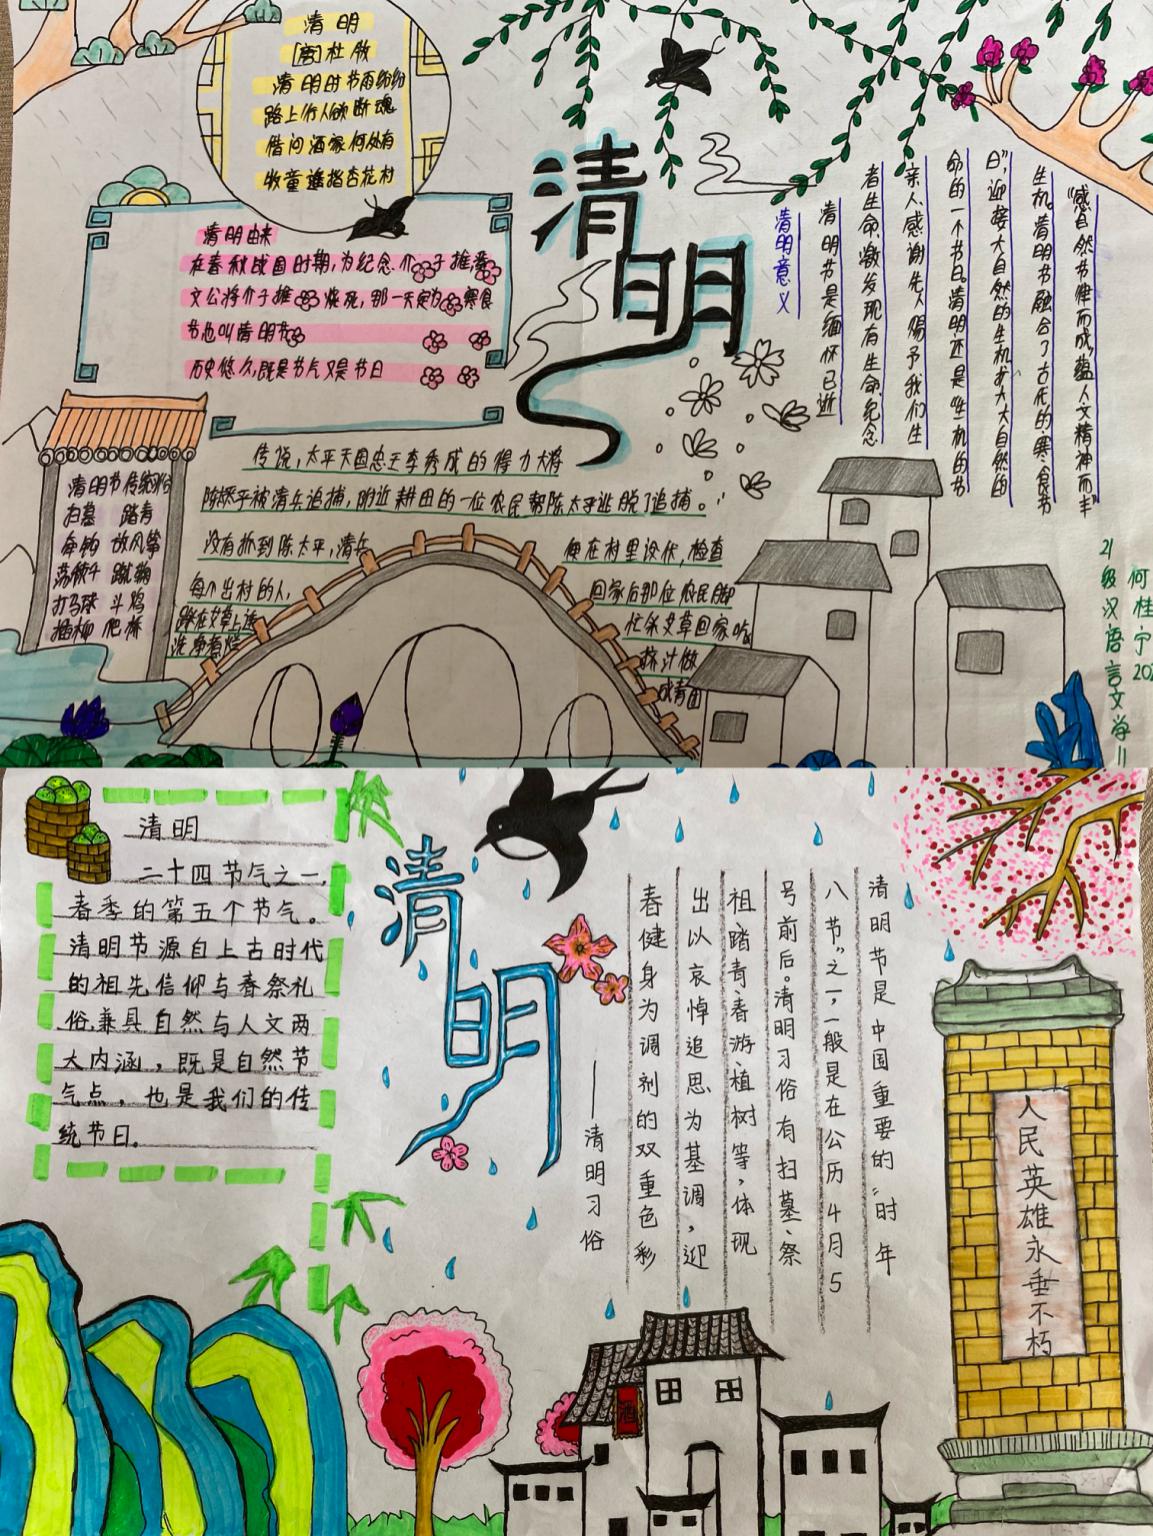 清明
[唐]杜牧
清明时节雨纷纷
路上行人欲断魂
借问酒家何处有
牧童遥指杏花村
清明由来
在春秋战国时期,为纪念介子推,晋
文公将介子推 烧死,那一天定为 寒食
节也叫清明节
历史悠久,既是节气又是节日
清明
清明意义
清明节是缅怀已逝
者生命,激发现有生命,纪念
亲人,感谢先人赐予我们生
命的一个节日。清明还是"生机的节
日",迎接大自然的生机,扩大大自然的
生机。清明节融合了古代的寒食节
"感自然节律而成,蕴人文精神而丰"
清明节传统习俗
扫墓 踏青
牵钩 放风筝
荡秋千 蹴鞠
打马球 斗鸡
插柳 爬桥
传说,太平天国忠王李秀成的得力大将
陈太平被清兵追捕,附近耕田的一位农民帮陈太平逃脱了追捕。
没有抓到陈太平,清兵
便在村里设伏,检查
每个出村的人,
回家后那位农民脚
踩在艾草上
忙采艾草回家
洗净煮烂
挤汁做
成青团
21级汉语言文学
何桂宁
清明
二十四节气之一,
春季的第五个节气。
清明节源自上古时代
的祖先信仰与春祭礼
俗,兼具自然与人文两
大内涵,既是自然节
气点,也是我们的传
统节日。
清明
清明节是中国重要的"时年
八节"之一,一般是在公历4月5
号前后。清明习俗有扫墓、祭
祖踏青、春游植树等,体现
出以哀悼追思为基调,迎
春健身为调剂的双重色彩
——清明习俗
人民英雄永垂不朽
酒